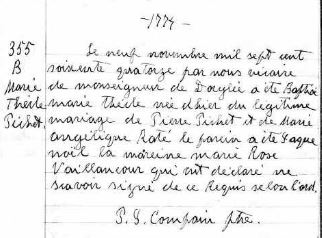 -1774-
355
B
Marie
Thècle
Pichet
Le neuf novembre mil sept cent
soixante quatorze par nous vicaire
de monseigneur de Dorylée a été Baptisé
marie thècle née d'hier du légitime
mariage de Pierre Pichet et de Marie
angélique Raté le parein a été Jaque
noël la mareine marie Rose
Vaillancour qui ont déclaré ne
scavoir signé de ce Requis selon l'ord.
P. S. Compain ptre.